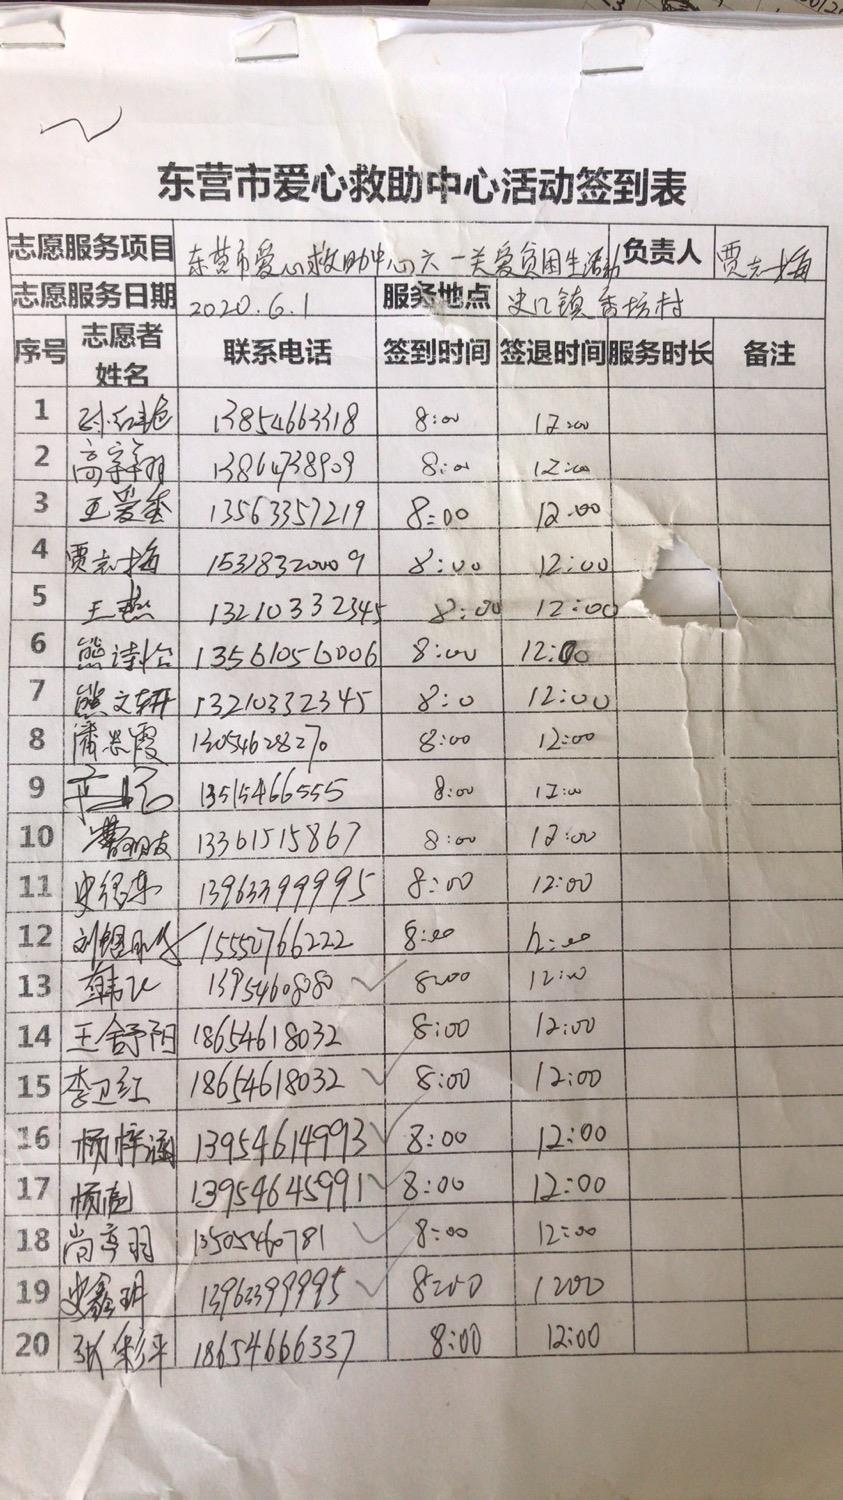 东营市爱心救助中心活动签到表
志愿服务项目 东营市爱心救助中心六一关爱贫困生活动 负责人 贾志梅
志愿服务日期 2020.6.1 服务地点 史口镇香坊村
序号 志愿者姓名 联系电话 签到时间 签退时间 服务时长 备注
1 13854663318 8:00 12:00
2 高宇翔 13864738909 8:00 12:00
3 王爱奎 13563357219 8:00 12:00
4 贾志梅 15318320009 8:00 12:00
5 王燕 13210332345 8:00 12:00
6 熊诗怡 13561056006 8:00 12:00
7 熊文轩 13210332345 8:0 12:00
8 潘翠霞 13054628270 8:00 12:00
9 13515466555 8:00 12:00
10 曹朋友 13361515867 8:00 12:00
11 史绍东 13963399995 8:00 12:00
12 15552766222 8:00 12:00
13 韩飞 13954608080 8:00 12:00
14 王舒阳 18654618032 8:00 12:00
15 李卫红 18654618032 8:00 12:00
16 杨梓涵 13954614993 8:00 12:00
17 杨彪 13954645991 8:00 12:00
18 尚亭羽 13505460781 8:00 12:00
19 史鑫玥 13963399995 8:00 1200
20 张彩平 18654666337 8:00 12:00